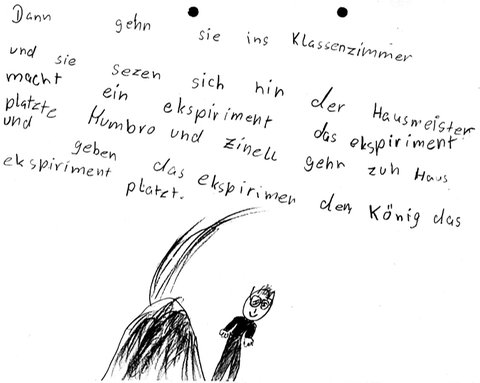 Dann gehn sie ins Klassenzimmer
und sie sezen sich hin der Hausmeister
macht ein ekspiriment das ekspiriment
platzte Mumbro und zinell gehn zuh Haus
und geben das ekspirimen den König das
ekspiriment platzt.